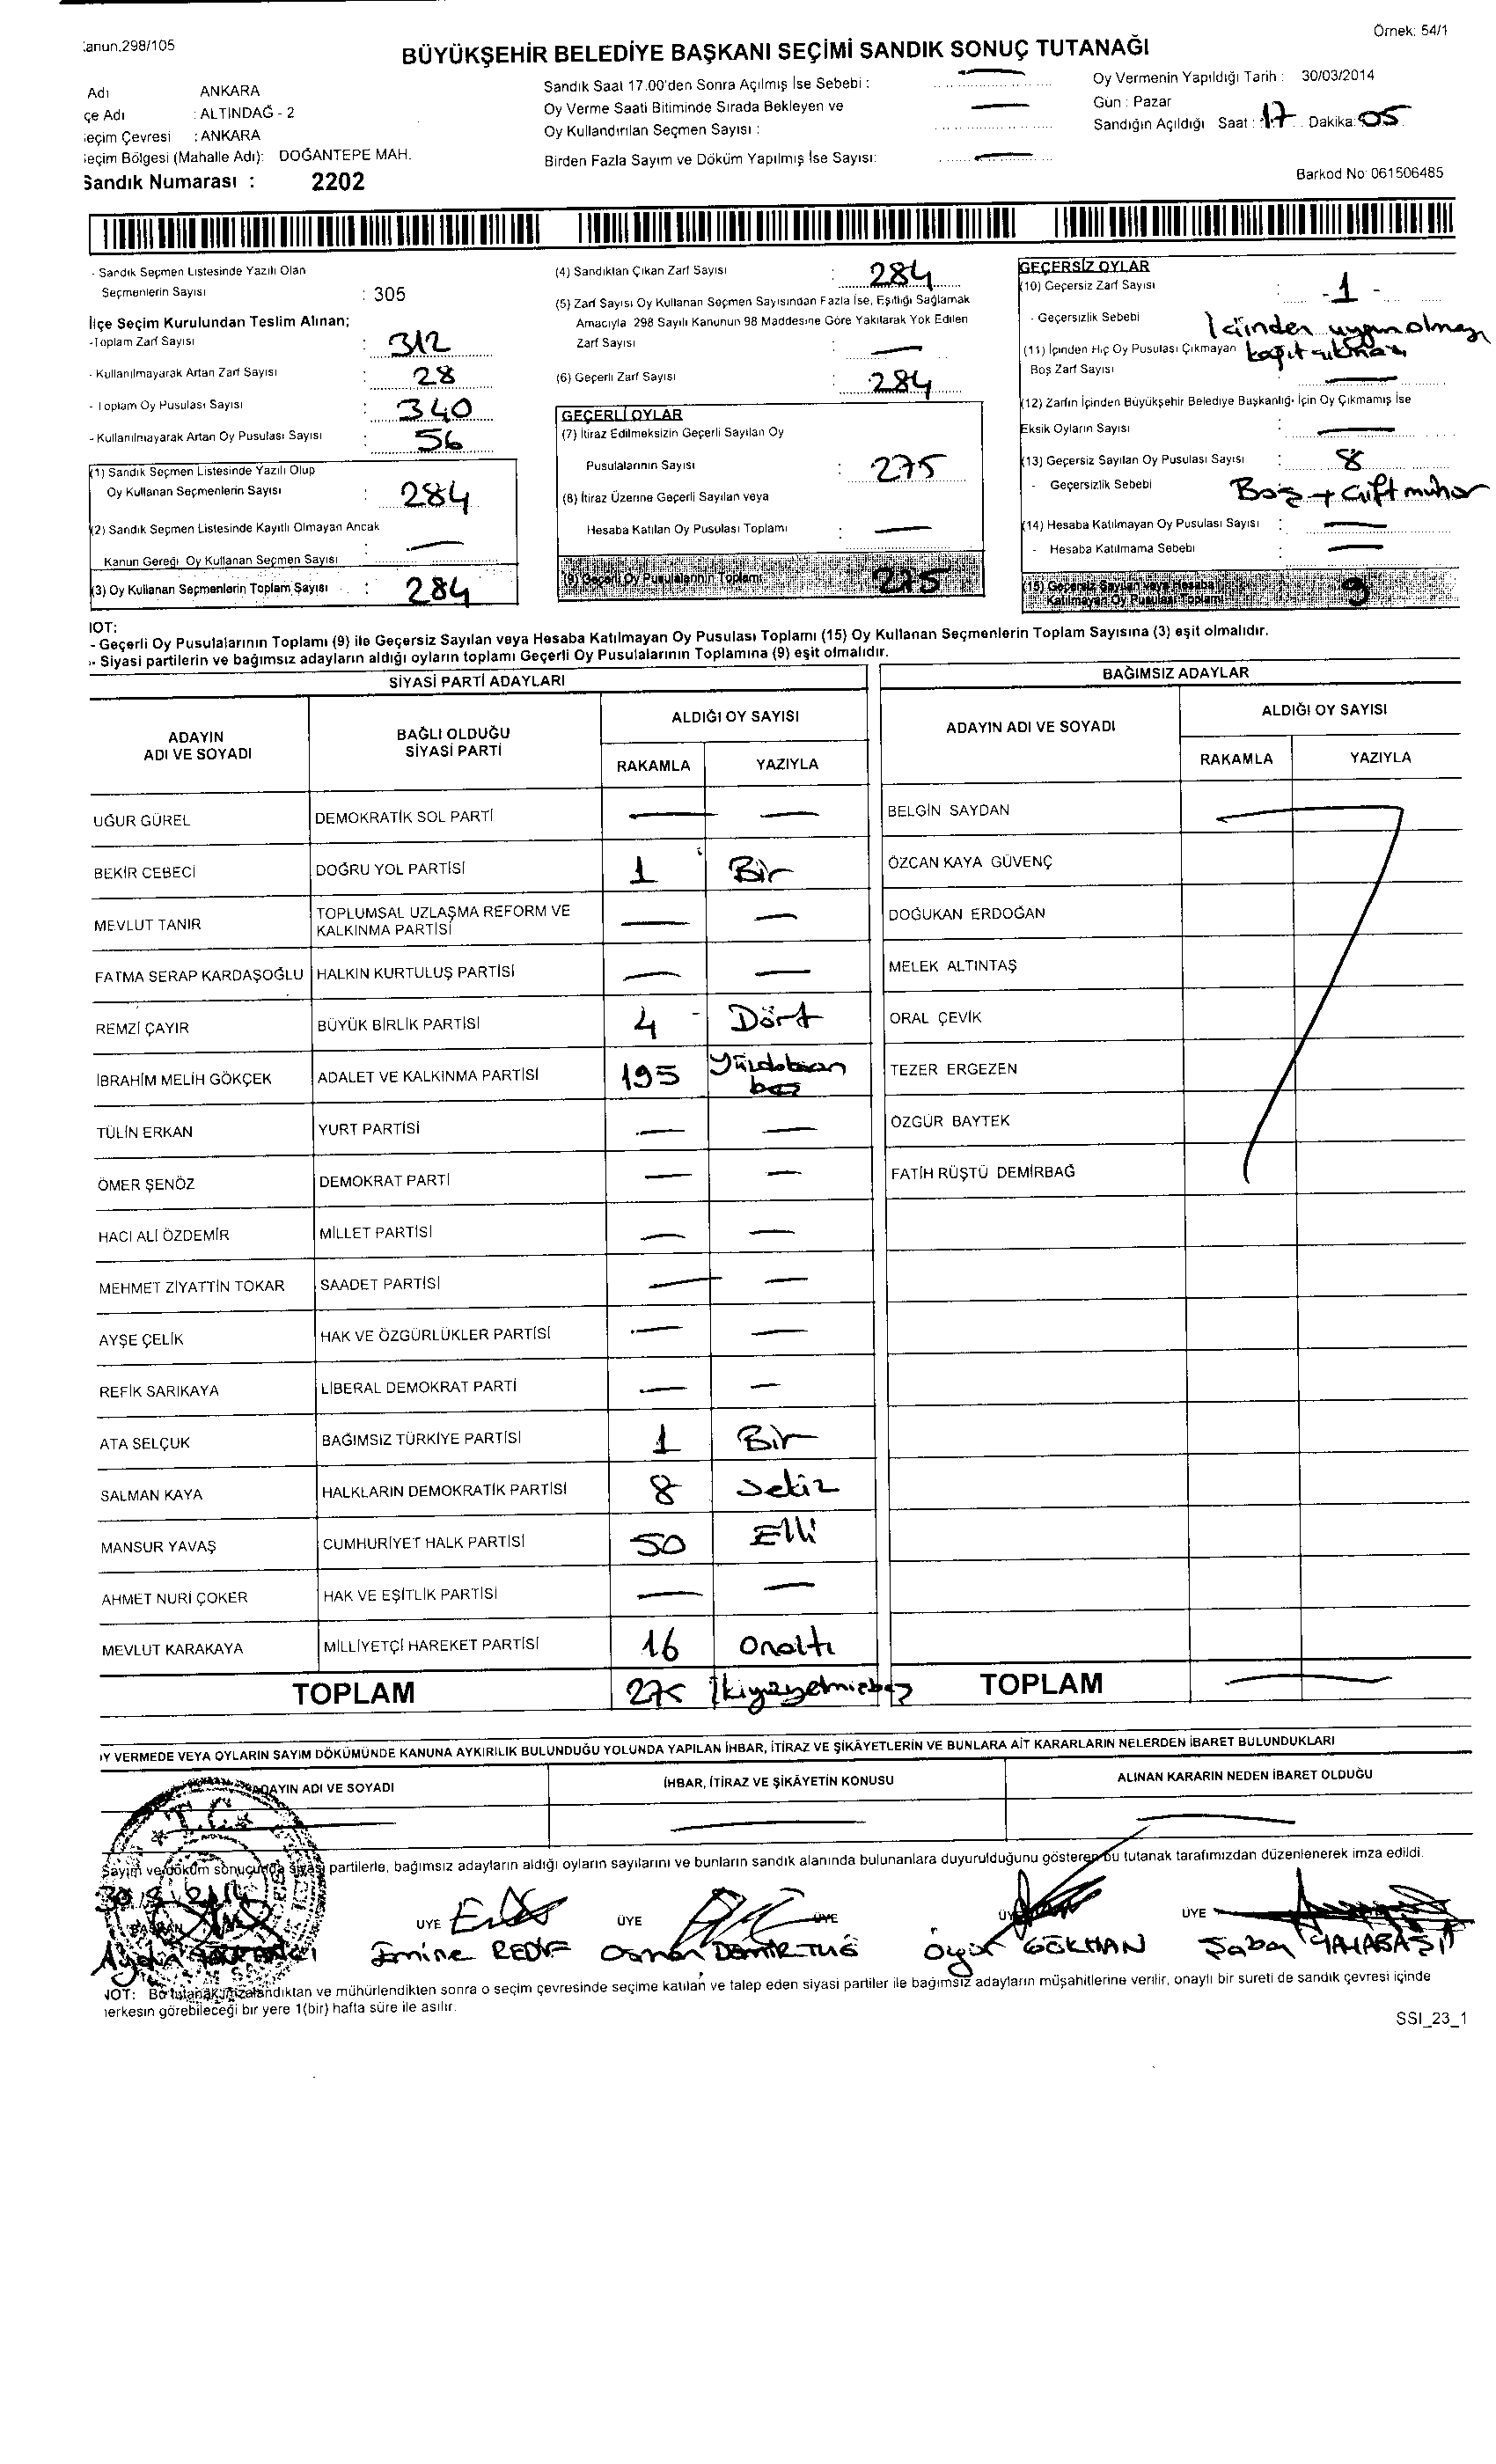 Örnek: 54/1
anun.298/105
BÜYÜKŞEHİR BELEDİYE BAŞKANI SEÇİMİ SANDIK SONUÇ TUTANAĞI
Adı ANKARA
çe Adı : ALTINDAĞ - 2
eçim Çevresi : ANKARA
eçim Bölgesi (Mahalle Adı): DOĞANTEPE MAH.
Sandık Numarası : 2202
Sandık Saat 17.00'den Sonra Açılmış İse Sebebi : —
Oy Verme Saati Bitiminde Sırada Bekleyen ve
Oy Kullandırılan Seçmen Sayısı : —
Birden Fazla Sayım ve Döküm Yapılmış İse Sayısı: —
Oy Vermenin Yapıldığı Tarih : 30/03/2014
Gün : Pazar
Sandığın Açıldığı Saat : 17 Dakika: 05
Barkod No: 061506485
- Sandık Seçmen Listesinde Yazılı Olan
Seçmenlerin Sayısı : 305
İlçe Seçim Kurulundan Teslim Alınan;
-Toplam Zarf Sayısı : 312
- Kullanılmayarak Artan Zarf Sayısı : 28
- Toplam Oy Pusulası Sayısı : 340
- Kullanılmayarak Artan Oy Pusulası Sayısı : 56
(1) Sandık Seçmen Listesinde Yazılı Olup
Oy Kullanan Seçmenlerin Sayısı : 284
(2) Sandık Seçmen Listesinde Kayıtlı Olmayan Ancak
Kanun Gereği Oy Kullanan Seçmen Sayısı : —
(3) Oy Kullanan Seçmenlerin Toplam Sayısı : 284
(4) Sandıktan Çıkan Zarf Sayısı : 284
(5) Zarf Sayısı Oy Kullanan Seçmen Sayısından Fazla İse, Eşitliği Sağlamak
Amacıyla 298 Sayılı Kanunun 98 Maddesine Göre Yakılarak Yok Edilen
Zarf Sayısı : —
(6) Geçerli Zarf Sayısı : 284
GEÇERLİ OYLAR
(7) İtiraz Edilmeksizin Geçerli Sayılan Oy
Pusulalarının Sayısı : 275
(8) İtiraz Üzerine Geçerli Sayılan veya
Hesaba Katılan Oy Pusulası Toplamı : —
(9) Geçerli Oy Pusulalarının Toplamı 275
GEÇERSİZ OYLAR
(10) Geçersiz Zarf Sayısı : -1-
- Geçersizlik Sebebi İçinden uygun olmayan
kağıt çıkması
(11) İçinden Hiç Oy Pusulası Çıkmayan
Boş Zarf Sayısı —
(12) Zarfın İçinden Büyükşehir Belediye Başkanlığı İçin Oy Çıkmamış İse
Eksik Oyların Sayısı : —
(13) Geçersiz Sayılan Oy Pusulası Sayısı : 8
- Geçersizlik Sebebi Boş + Çift mühür
(14) Hesaba Katılmayan Oy Pusulası Sayısı : —
- Hesaba Katılmama Sebebi : —
(15) Geçersiz Sayılan veya Hesaba
Katılmayan Oy Pusulası Toplamı 9
NOT:
- Geçerli Oy Pusulalarının Toplamı (9) ile Geçersiz Sayılan veya Hesaba Katılmayan Oy Pusulası Toplamı (15) Oy Kullanan Seçmenlerin Toplam Sayısına (3) eşit olmalıdır.
- Siyasi partilerin ve bağımsız adayların aldığı oyların toplamı Geçerli Oy Pusulalarının Toplamına (9) eşit olmalıdır.
SİYASİ PARTİ ADAYLARI
ADAYIN ADI VE SOYADI BAĞLI OLDUĞU SİYASİ PARTİ ALDIĞI OY SAYISI
RAKAMLA YAZIYLA
UĞUR GÜREL DEMOKRATİK SOL PARTİ — —
BEKİR CEBECİ DOĞRU YOL PARTİSİ 1 Bir
MEVLUT TANIR TOPLUMSAL UZLAŞMA REFORM VE KALKINMA PARTİSİ — —
FATMA SERAP KARDAŞOĞLU HALKIN KURTULUŞ PARTİSİ — —
REMZİ ÇAYIR BÜYÜK BİRLİK PARTİSİ 4 - Dört
İBRAHİM MELİH GÖKÇEK ADALET VE KALKINMA PARTİSİ 195 Yüzdoksan beş
TÜLİN ERKAN YURT PARTİSİ — —
ÖMER ŞENÖZ DEMOKRAT PARTİ — —
HACI ALİ ÖZDEMİR MİLLET PARTİSİ — —
MEHMET ZİYATTİN TOKAR SAADET PARTİSİ — —
AYŞE ÇELİK HAK VE ÖZGÜRLÜKLER PARTİSİ — —
REFİK SARIKAYA LİBERAL DEMOKRAT PARTİ — —
ATA SELÇUK BAĞIMSIZ TÜRKİYE PARTİSİ 1 Bir
SALMAN KAYA HALKLARIN DEMOKRATİK PARTİSİ 8 Sekiz
MANSUR YAVAŞ CUMHURİYET HALK PARTİSİ 50 Elli
AHMET NURİ ÇOKER HAK VE EŞİTLİK PARTİSİ — —
MEVLUT KARAKAYA MİLLİYETÇİ HAREKET PARTİSİ 16 Onaltı
TOPLAM 275 İkiyüzyetmişbeş
BAĞIMSIZ ADAYLAR
ADAYIN ADI VE SOYADI ALDIĞI OY SAYISI
RAKAMLA YAZIYLA
BELGİN SAYDAN
ÖZCAN KAYA GÜVENÇ
DOĞUKAN ERDOĞAN
MELEK ALTINTAŞ
ORAL ÇEVİK
TEZER ERGEZEN
ÖZGÜR BAYTEK
FATİH RÜŞTÜ DEMİRBAĞ
TOPLAM —
OY VERMEDE VEYA OYLARIN SAYIM DÖKÜMÜNDE KANUNA AYKIRILIK BULUNDUĞU YOLUNDA YAPILAN İHBAR, İTİRAZ VE ŞİKÂYETLERİN VE BUNLARA AİT KARARLARIN NELERDEN İBARET BULUNDUKLARI
ADAYIN ADI VE SOYADI İHBAR, İTİRAZ VE ŞİKÂYETİN KONUSU ALINAN KARARIN NEDEN İBARET OLDUĞU
T.C.
Sayım ve döküm sonucunda siyasi partilerle, bağımsız adayların aldığı oyların sayılarını ve bunların sandık alanında bulunanlara duyurulduğunu gösteren bu tutanak tarafımızdan düzenlenerek imza edildi.
BAŞKAN ÜYE ÜYE ÜYE ÜYE ÜYE
Aydın Emine REDİF Osman DEMİRTUĞ GÖKHAN Şaban
NOT: Bu tutanak imzalandıktan ve mühürlendikten sonra o seçim çevresinde seçime katılan ve talep eden siyasi partiler ile bağımsız adayların müşahitlerine verilir, onaylı bir sureti de sandık çevresi içinde
herkesin görebileceği bir yere 1(bir) hafta süre ile asılır.
SSI_23_1